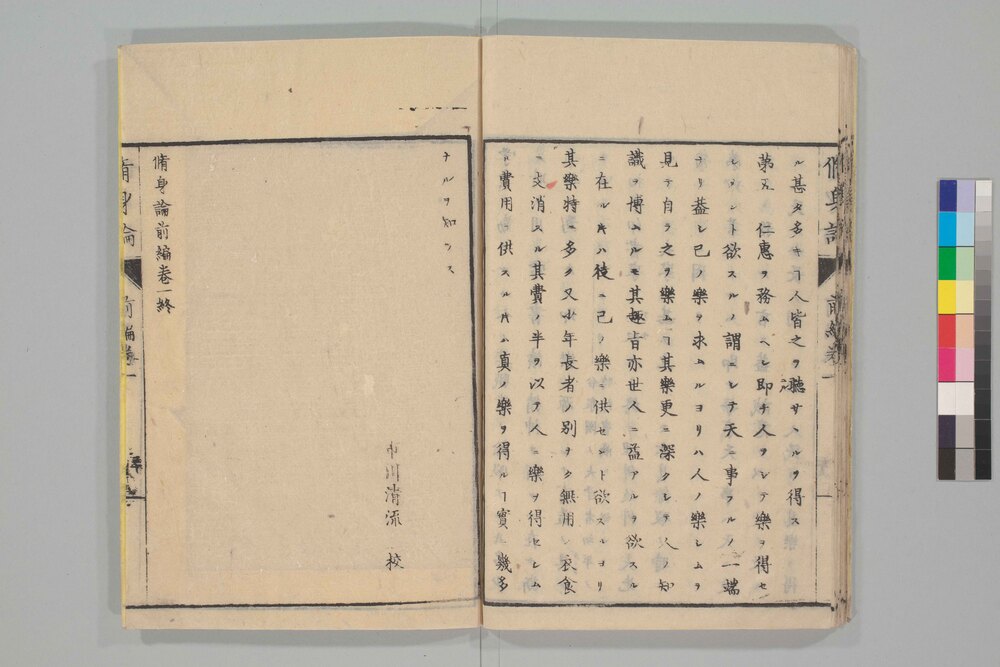 ル甚タ多キヿ人皆之ヲ聽サヽルヲ得ス
第五 仁惠ヲ務ムヘシ即チ人ヲシテ樂ヲ得セ
シメント欲スルノ謂ニシテ天ニ事フルノ一端
ナリ葢シ己ノ樂ヲ求ムルヨリハ人ノ樂シムヲ
見テ自ラ之ヲ樂ムヿ其樂更ニ深クシテ人ノ知
識ヲ博ムルモ其趣旨亦世人ニ益アルヲ欲スル
ニ在ルキハ徒ニ己ノ樂ニ供セント欲スルヨリ
其樂特ニ多ク又少年長者ノ別ヲク無用ノ衣食
ニ支消スル其費ノ半ヲ以テ人ニ樂ヲ得セシム
ル費用ニ供スルキハ眞ノ樂ヲ得ルヿ實ニ幾多
ナルヲ知ラス
市川清流 校
脩身論前編卷一終
脩身論 前編卷一